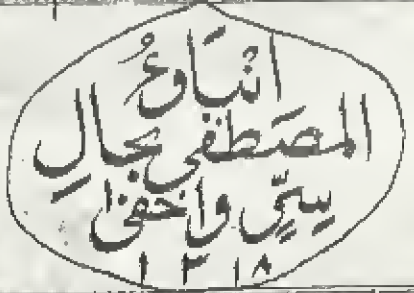 انْبَاءُ
المصَطفى بحالِ
سِرٍّ وَاخفى
١٣١٨